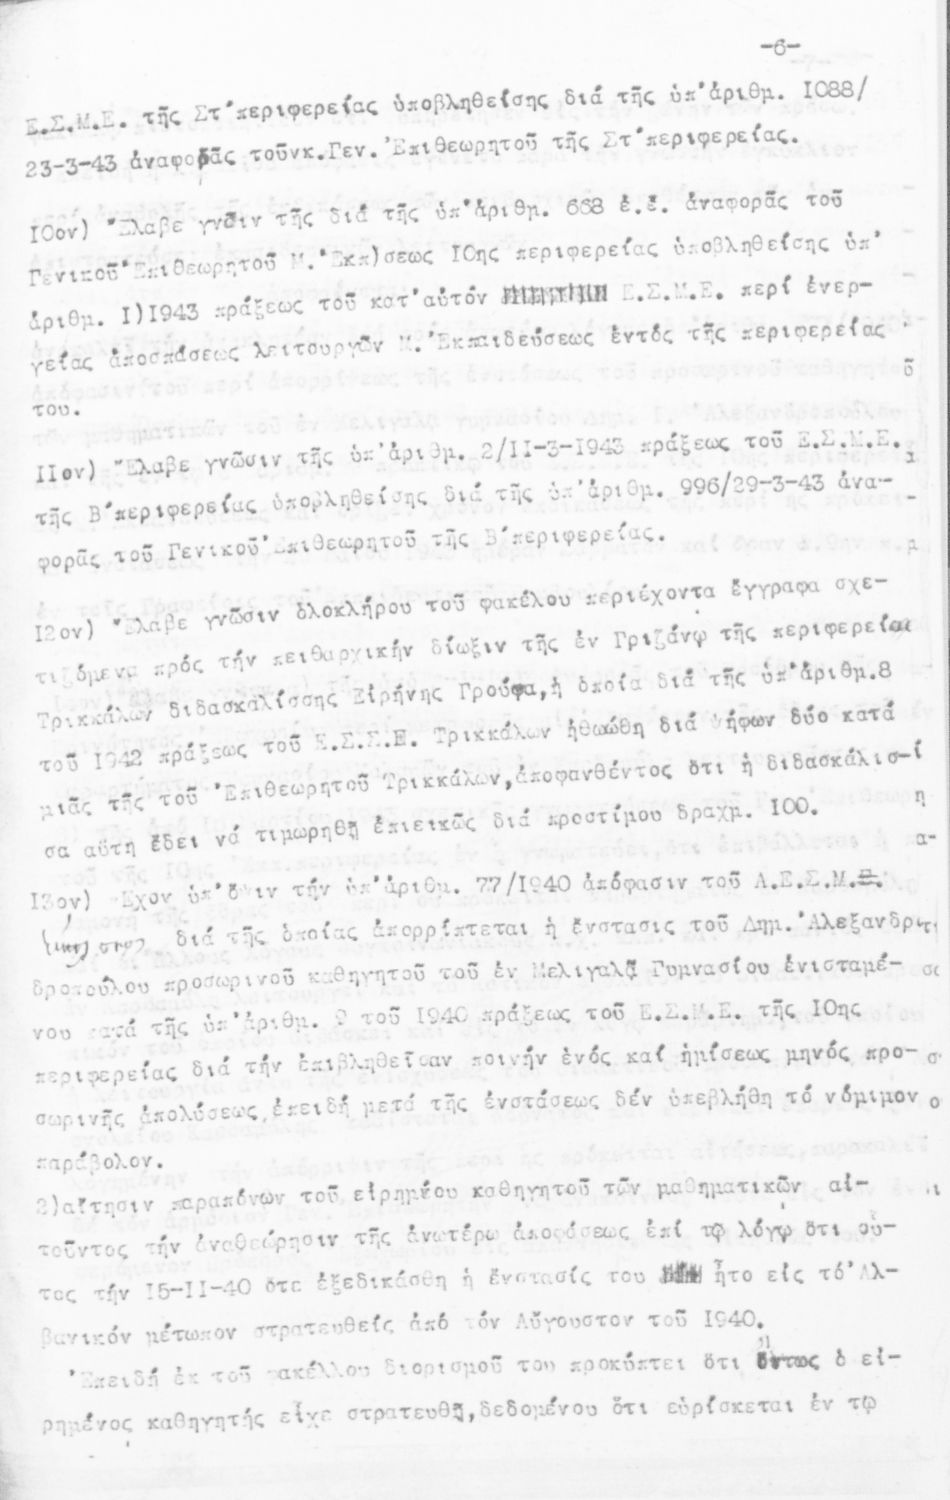 -6-
Ε.Σ.Μ.Ε. τῆς Στ΄περιφερείας ὑποβληθείσης διά τῆς ὑπ'ἀριθμ. I088/
23-3-43 ἀναφορᾶς τοῦ κ.Γεν.Ἐπιθεωρητοῦ τῆς Στ΄περιφερείας.
I0ον) Ἔλαβε γνῶσιν τῆς διά τῆς ὑπ'ἀριθμ. 668 ἐ.ἔ. ἀναφορᾶς τοῦ
Γενικοῦ Ἐπιθεωρητοῦ Μ.Ἐκπ)σεως I0ης περιφερείας ὑποβληθείσης ὑπ'
ἀριθμ. I)I943 πράξεως τοῦ κατ'αὐτόν Ε.Σ.Μ.Ε. περί ἐνερ-
γείας ἀποσπάσεως λειτουργῶν Μ.Ἐκπαιδεύσεως ἐντός τῆς περιφερείας
του.
IIον) Ἔλαβε γνῶσιν τῆς ὑπ'ἀριθμ. 2/II-3-I943 πράξεως τοῦ Ε.Σ.Μ.Ε.
τῆς Β΄περιφερείας ὑποβληθείσης διά τῆς ὑπ'ἀριθμ. 996/29-3-43 ἀνα-
φορᾶς τοῦ Γενικοῦ Ἐπιθεωρητοῦ τῆς Β΄περιφερείας.
I2ον) Ἔλαβε γνῶσιν ὁλοκλήρου τοῦ φακέλου περιέχοντα ἔγγραφα σχε-
τιζόμενα πρός τήν πειθαρχικήν δίωξιν τῆς ἐν Γριζάνῳ τῆς περιφερείας
Τρικκάλων διδασκαλίσσης Εἰρήνης Γρούφα,ἡ ὁποία διά τῆς ὑπ'ἀριθμ.8
τοῦ I942 πράξεως τοῦ Ε.Σ.Σ.Ε. Τρικκάλων ἠθωώθη διά ψήφων δύο κατά
μιᾶς τῆς τοῦ Ἐπιθεωρητοῦ Τρικκάλων,ἀποφανθέντος ὅτι ἡ διδασκάλισ-
σα αὕτη ἔδει νά τιμωρηθῇ ἐπιεικῶς διά προστίμου δραχμ. I00.
I3ον) Ἔχον ὑπ'ὄψιν τήν ὑπ'ἀριθμ. 77/I940 ἀπόφασιν τοῦ Α.Ε.Σ.Μ.Ε.
διά τῆς ὁποίας ἀπορρίπτεται ἡ ἔνστασις τοῦ Δημ.Ἀλεξανδρ
δροπούλου προσωρινοῦ καθηγητοῦ τοῦ ἐν Μελιγαλᾷ Γυμνασίου ἐνισταμέ-
νου κατά τῆς ὑπ'ἀριθμ. 9 τοῦ I940 πράξεως τοῦ Ε.Σ.Μ.Ε. τῆς I0ης
περιφερείας διά τήν ἐπιβληθεῖσαν ποινήν ἑνός καί ἡμίσεως μηνός προ-
σωρινῆς ἀπολύσεως,ἐπειδή μετά τῆς ἐνστάσεως δέν ὑπεβλήθη τό νόμιμον
παράβολον.
2)αἴτησιν παραπόνων τοῦ εἰρημένου καθηγητοῦ τῶν μαθηματικῶν αἰ-
τοῦντος τήν ἀναθεώρησιν τῆς ἀνωτέρω ἀποφάσεως ἐπί τῷ λόγῳ ὅτι οὗ-
τος τήν I5-II-40 ὅτε ἐξεδικάσθη ἡ ἔνστασίς του ἦτο εἰς τό Ἀλ-
βανικόν μέτωπον στρατευθείς ἀπό τόν Αὔγουστον τοῦ I940.
Ἐπειδή ἐκ τοῦ φακέλλου διορισμοῦ του προκύπτει ὅτι ὄντως ὁ εἰ-
ρημένος καθηγητής εἶχε στρατευθῇ,δεδομένου ὅτι εὑρίσκεται ἐν τῷ